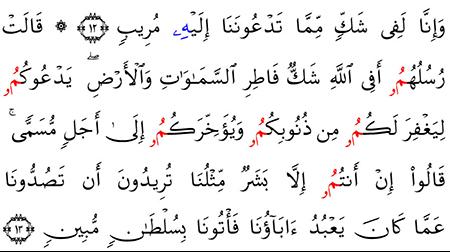 وَإِنَّا لَفِى شَكٍّ مِّمَّا تَدْعُونَنَا إِلَيْهِۦ مُرِيبٍ ﴿١٢﴾ ۞ قَالَتْ
رُسُلُهُمُۥ أَفِى ٱللَّهِ شَكٌّ فَاطِرِ ٱلسَّمَٰوَٰتِ وَٱلْأَرْضِ ۖ يَدْعُوكُمُۥ
لِيَغْفِرَ لَكُمُۥ مِن ذُنُوبِكُمُۥ وَيُؤَخِّرَكُمُۥ إِلَىٰ أَجَلٍ مُّسَمًّى ۚ
قَالُوا۟ إِنْ أَنتُمُۥ إِلَّا بَشَرٌ مِّثْلُنَا تُرِيدُونَ أَن تَصُدُّونَا
عَمَّا كَانَ يَعْبُدُ ءَابَآؤُنَا فَأْتُونَا بِسُلْطَٰنٍ مُّبِينٍ ﴿١٣﴾